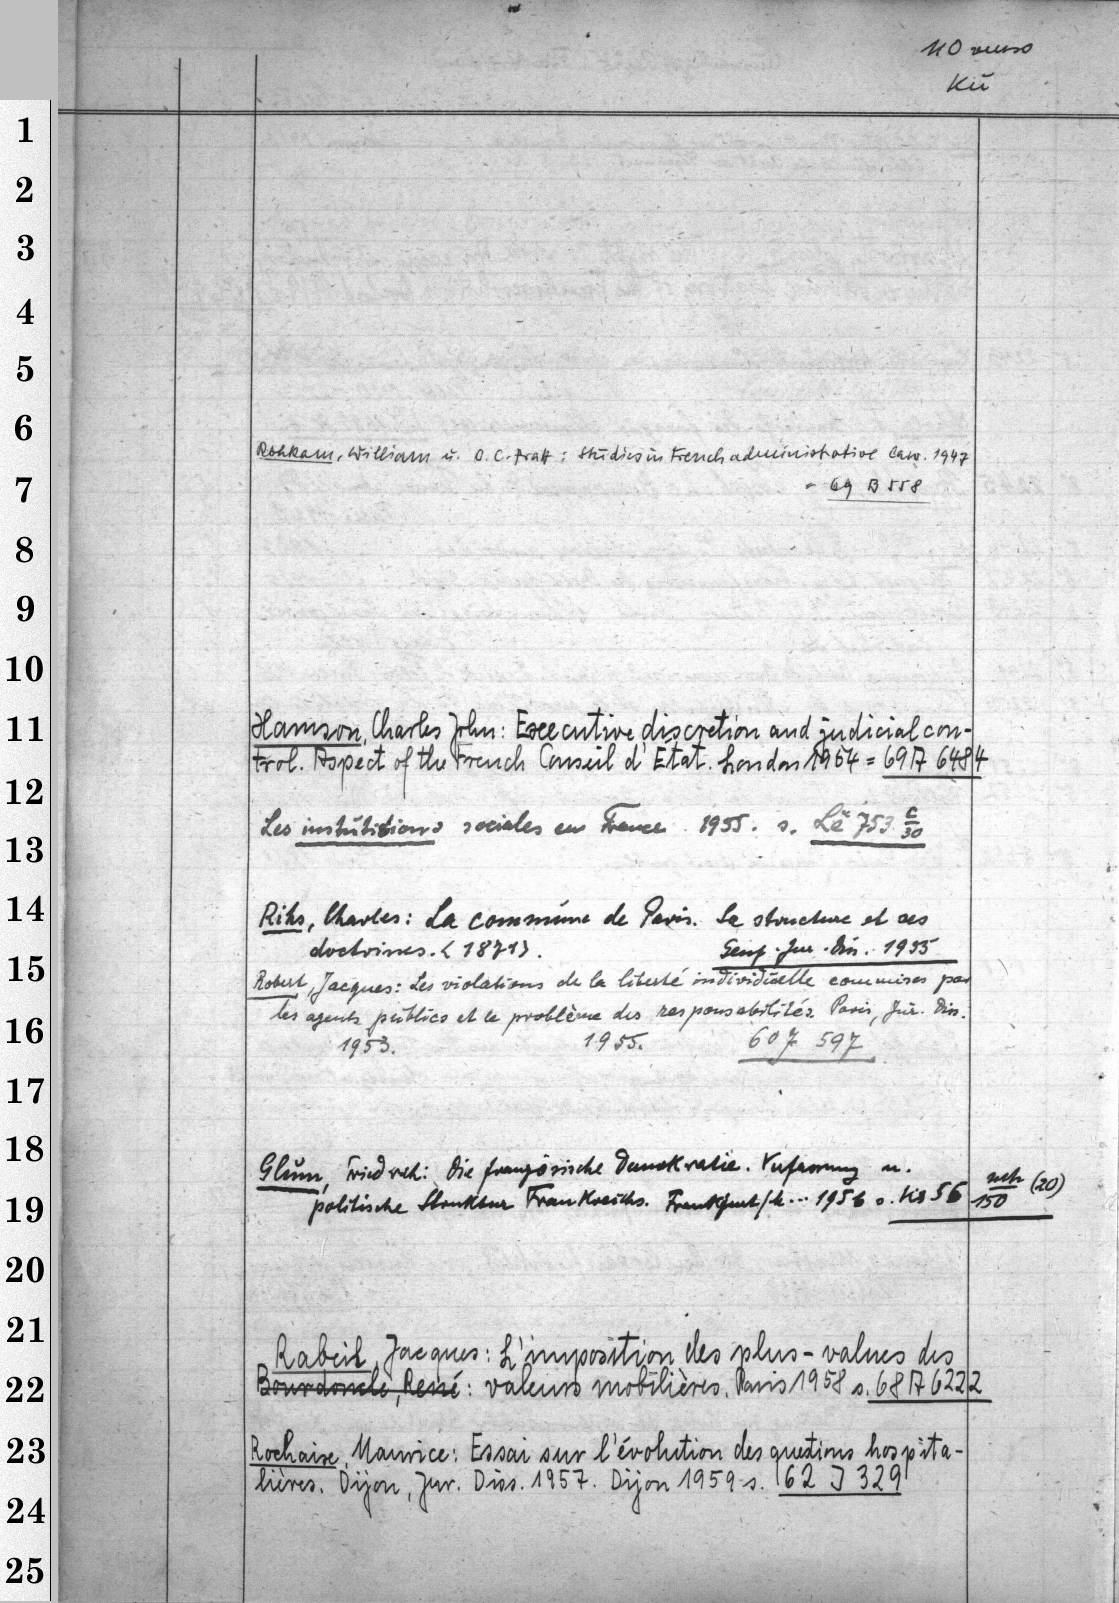 110 verso
Kü
1
2
3
4
5
6
Robkam, William u. O.C. Pratt: Studies in French administrative law. 1947
7
= 69 B 558
8
9
10
11
Hamson, Charles John: Execcutive discretion and judicial con-
trol. Aspect of the French Conseil d'Etat. London 1954 = 69 A 6484
12
Les institutions sociales en France. 1955. s. Lë 753 c/30
13
14
Rihs, Charles: La commune de Paris. Sa structure et ses
doctrines. <1871>. Genf. Jur. Diss. 1955
15
Robert, Jacques: Les violations de la liberté individuelle commises par
les agents publics et le problème des responsabilités. Paris, Jur. Diss.
16
1953. 1955. 607 597
17
18
Glum, Friedrich: Die französische Demokratie. Verfassung u.
politische Struktur Frankreichs. Frankfurt/M... 1956 s. 56 150 (20)
19
20
21
Rabeil, Jacques: L'imposition des plus-values des
22
Bourdoncle, René: valeurs mobilières. Paris 1958 s. 68 A 6222
23
Rochaise, Maurice: Essai sur l'évolution des questions hospita-
lières. Dijon, Jur. Diss. 1957. Dijon 1959 s. 62 J 329
24
25